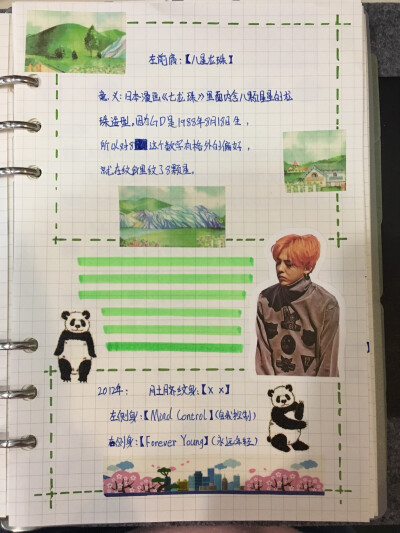 左胸膛:【八星龙珠】
意义:日本漫画《七龙珠》里面内含八颗星星的龙
珠造型。因为GD是1988年8月18日生,
所以对8这个数字有格外的偏好,
就在纹身里纹了8颗星。
2012年: 纹身:【X X】
左侧身:【Mind Control】(自我控制)
右侧身:【Forever Young】(永远年轻)